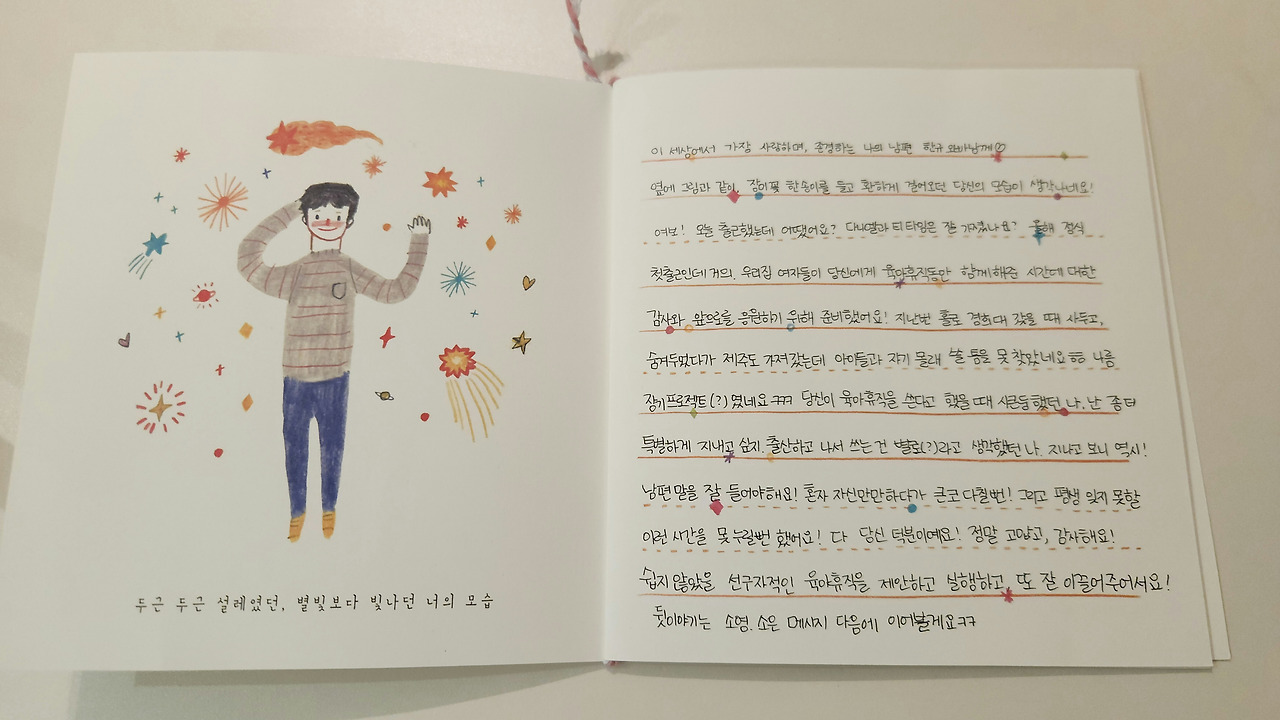 두근 두근 설레였던, 별빛보다 빛나던 너의 모습
이 세상에서 가장 사랑하며, 존경하는 나의 남편 한규 오바남께♡
옆에 그림과 같이, 장미꽃 한송이를 들고 환하게 걸어오던 당신의 모습이 생각나네요!
여보! 오늘 출근했는데 어땠어요? 다니엘과 티타임은 잘 가졌나요? 올해 정식
첫출근인데 거의. 우리집 여자들이 당신에게 육아휴직동안 함께해준 시간에 대한
감사와 앞으로를 응원하기 위해 준비했어요! 지난번 홀로 경희대 갔을 때 사두고,
숨겨두었다가 제주도 가져갔는데 아이들과 자기 몰래 쓸 틈을 못 찾았네요ㅎㅎ 나름
장기프로젝트(?)였네요 ㅋㅋㅋ 당신이 육아휴직을 쓴다고 했을 때 시큰둥했던 나. 난 좀 더
특별하게 지내고 싶지. 출산하고 나서 쓰는 건 별로(?)라고 생각했던 나. 지나고 보니 역시!
남편말을 잘 들어야해요! 혼자 자신만만하다가 큰코 다칠뻔! 그리고 평생 잊지 못할
이런 시간을 못 누릴뻔 했어요! 다 당신 덕분이예요! 정말 고맙고, 감사해요!
쉽지 않았을 선구자적인 육아휴직을 제안하고 실행하고, 또 잘 이끌어주어서요!
뒷이야기는 소영.소은 메시지 다음에 이어볼게요ㅋㅋ